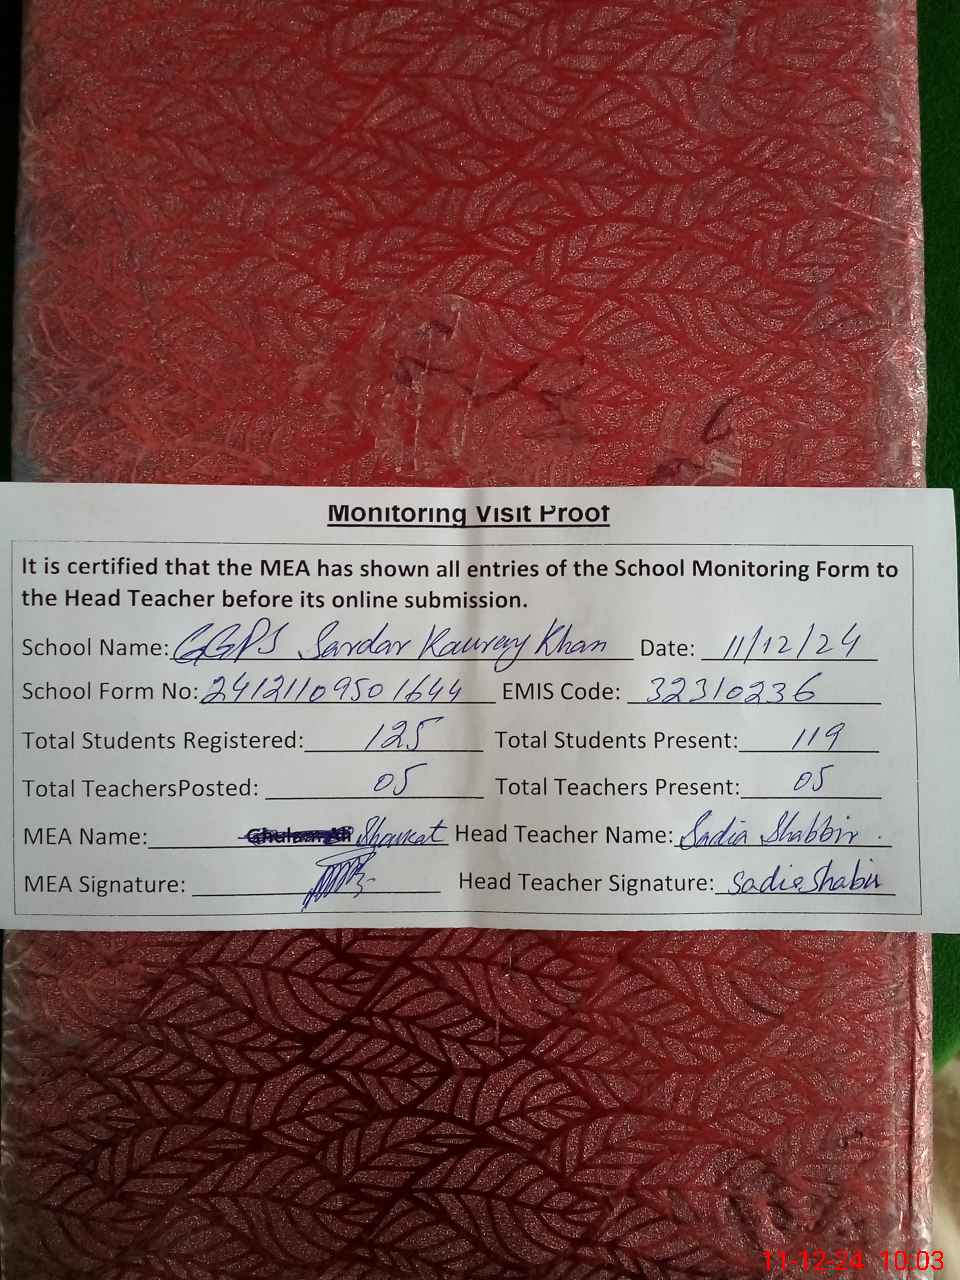 Monitoring Visit Proof
It is certified that the MEA has shown all entries of the School Monitoring Form to
the Head Teacher before its online submission.
School Name: GGPS Sardar Kauray Khan Date: 11/12/24
School Form No: 24121109501644 EMIS Code: 32310236
Total Students Registered: 125 Total Students Present: 119
Total TeachersPosted: 05 Total Teachers Present: 05
MEA Name: Shaukat Head Teacher Name: Sadia Shabbir.
MEA Signature: Head Teacher Signature: Sadia Shabir
11-12-24 10:03